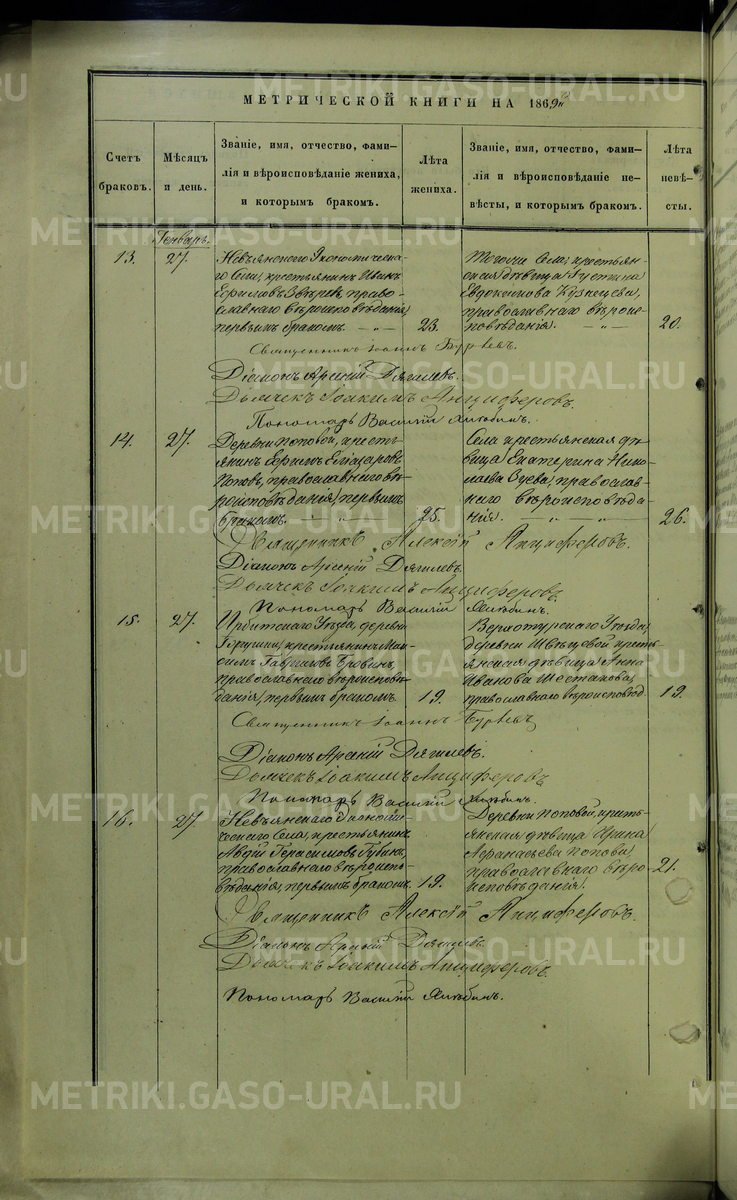 МЕТРИЧЕСКОЙ КНИГИ НА 1869й
Счетъ браковъ.
Мѣсяцъ и день.
Званіе, имя, отчество, фами-
лія и вѣроисповѣданіе жениха,
и которымъ бракомъ.
Лѣта жениха.
Званіе, имя, отчество, фами-
лія и вѣроисповѣданіе не-
вѣсты, и которымъ бракомъ.
Лѣта невѣ-
сты.
Генварь.
13.
27.
Невьянскаго Экономическа-
го Села, крестьянинъ Иванъ
Ефимовъ Звѣревъ, право-
славнаго вѣроисповѣданія,
первымъ бракомъ
23.
Тогоже Села, крестьян-
ская дѣвица Густина
Евдокимова Кузнецова,
православнаго вѣроис-
повѣданія.
20.
Священникъ Іоаннъ
Діаконъ Арсеній Дягилевъ.
Дьячекъ Іоакимъ Анциферовъ.
Пономарь Василій
14.
27.
Деревни Поповой, кресть-
янинъ Ефимъ Елиазаровъ
Поповъ, православнаго вѣ-
роисповѣданія, первымъ
бракомъ.
25.
Села крестьянская дѣ-
вица Екатерина Нико-
лаева Зуева, православ-
наго вѣроисповѣда-
нія.
26.
Священникъ Алексій Анциферовъ.
Діаконъ Арсеній Дягилевъ.
Дьячекъ Іоакимъ Анциферовъ.
Пономарь Василій
15.
27.
Ирбитскаго Уѣзда, деревни
крестьянинъ Мак-
симъ Гавриловъ
православнаго вѣроисповѣ-
данія, первымъ бракомъ.
19.
Верхотурскаго Уѣзда,
деревни Швецовой кресть-
янская дѣвица Анна
Иванова Шестакова,
православнаго вѣроисповѣд.
19.
Священникъ Іоаннъ
Діаконъ Арсеній Дягилевъ.
Дьячекъ Іоакимъ Анциферовъ
Пономарь Василій
16.
27.
Невьянскаго Экономи-
ческаго Села, крестьянинъ
Авдій Герасимовъ Губинъ,
православнаго вѣроиспо-
вѣданія, первымъ бракомъ.
19.
Деревни Поповой, кресть-
янская дѣвица Ирина
Афанасьева Попова,
православнаго вѣро-
исповѣданія.
21.
Священникъ Алексій Анциферовъ.
Діаконъ Арсеній Дягилевъ.
Дьячекъ Іоакимъ Анциферовъ.
Пономарь Василій
METRIKI.GASO-URAL.RU